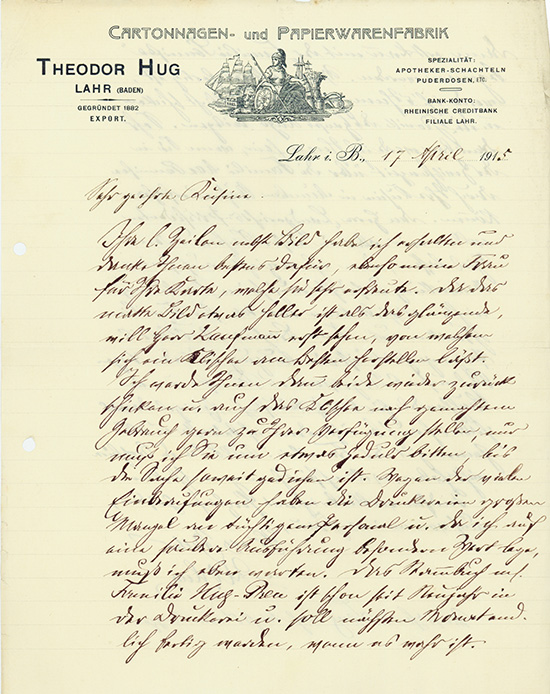 CARTONNAGEN- und PAPIERWARENFABRIK
THEODOR HUG
LAHR (BADEN)
GEGRÜNDET 1882
EXPORT.
SPEZIALITÄT:
APOTHEKER-SCHACHTELN
PUDERDOSEN, ETC.
BANK-KONTO:
RHEINISCHE CREDITBANK
FILIALE LAHR.
Lahr i. B., 17 April 1915
Sehr geehrte Kusine.
Ihre l. Zeilen nebst Bild habe ich erhalten und
danke Ihnen bestens dafür, ebenso meine Frau
für Ihre Karte, welche sie sehr erfreute. Da das
matte Bild etwas heller ist als das glänzende,
will Herr Kaufmann erst sehen, von welchem
sich ein Klischee am besten herstellen läßt.
Ich werde Ihnen dann beide wieder zurück
schicken u. auch das Klischee nach gemachtem
Gebrauch gern zu Ihrer Verfügung stellen, nur
muß ich Sie um etwas Geduld bitten, bis
die Sache soweit gediehen ist. Wegen der vielen
Einberufungen haben die Druckereien großen
Mangel an tüchtigem Personal u. da ich auf
eine saubere Ausführung besondern Wert lege,
muß ich eben warten. Das Stammbuch
Familie Hug- ist schon seit Neujahr in
der Druckerei u. soll nächsten Monat end-
lich fertig werden, wenn es wahr ist.